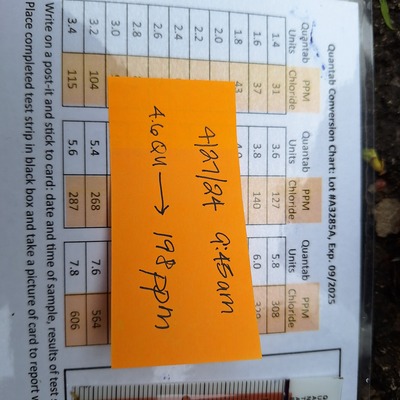 Quantab Conversion Chart: Lot #A3285A, Exp. 09/2025
Quantab Units PPM Chloride Quantab Units PPM Chloride Quantab Units PPM Chloride
1.4 31 3.6 127 5.8 308
1.6 37 3.8 140 6.0
1.8 43
2.0
2.2
2.4
2.6
2.8
3.0
3.2 104 5.4 268 7.6 564
3.4 115 5.6 287 7.8 606
4/27/24 9:45am
4.6 QU → 198 ppm
Write on a post-it and stick to card: date and time of sample, results of test
Place completed test strip in black box and take a picture of card to report